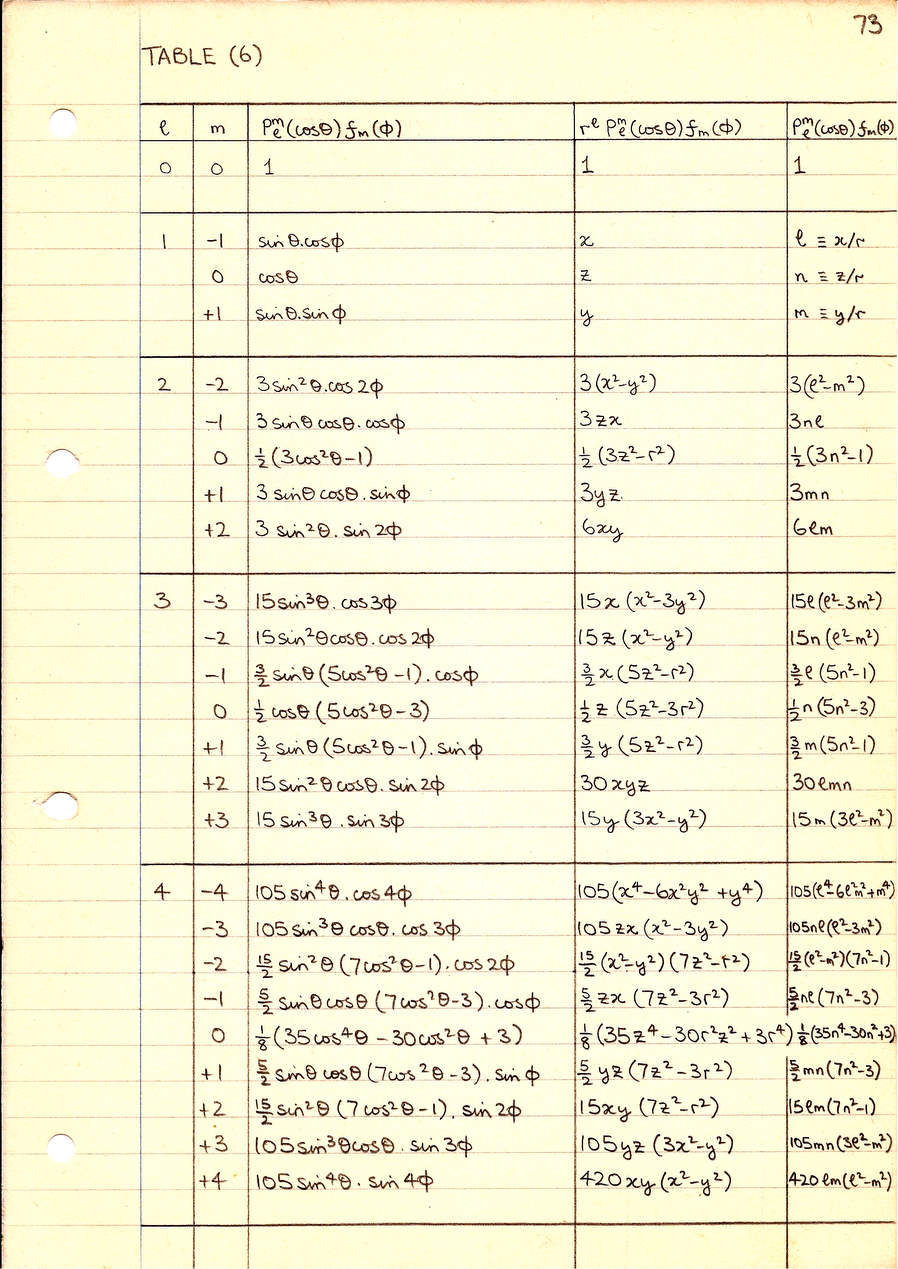 73
TABLE (6)
ℓ m Pₑᵐ(cosθ) fₘ(ϕ) rᵉ Pₑᵐ(cosθ) fₘ(ϕ) Pₑᵐ(cosθ) fₘ(ϕ)
0 0 1 1 1
1 -1 sinθ.cosϕ x ℓ ≡ x/r
0 cosθ z n ≡ z/r
+1 sinθ.sinϕ y m ≡ y/r
2 -2 3sin²θ.cos2ϕ 3(x²-y²) 3(ℓ²-m²)
-1 3sinθcosθ.cosϕ 3zx 3nℓ
0 ½(3cos²θ-1) ½(3z²-r²) ½(3n²-1)
+1 3sinθcosθ.sinϕ 3yz. 3mn
+2 3sin²θ.sin2ϕ 6xy 6ℓm
3 -3 15sin³θ.cos3ϕ 15x(x²-3y²) 15ℓ(ℓ²-3m²)
-2 15sin²θcosθ.cos2ϕ 15z(x²-y²) 15n(ℓ²-m²)
-1 3/2 sinθ(5cos²θ-1).cosϕ 3/2 x(5z²-r²) 3/2 ℓ(5n²-1)
0 ½cosθ(5cos²θ-3) ½z(5z²-3r²) ½n(5n²-3)
+1 3/2 sinθ(5cos²θ-1).sinϕ 3/2 y(5z²-r²) 3/2 m(5n²-1)
+2 15sin²θcosθ.sin2ϕ 30xyz 30ℓmn
+3 15sin³θ.sin3ϕ 15y(3x²-y²) 15m(3ℓ²-m²)
4 -4 105sin⁴θ.cos4ϕ 105(x⁴-6x²y²+y⁴) 105(ℓ⁴-6ℓ²m²+m⁴)
-3 105sin³θcosθ.cos3ϕ 105zx(x²-3y²) 105nℓ(ℓ²-3m²)
-2 15/2 sin²θ(7cos²θ-1).cos2ϕ 15/2 (x²-y²)(7z²-r²) 15/2 (ℓ²-m²)(7n²-1)
-1 5/2 sinθcosθ(7cos²θ-3).cosϕ 5/2 zx(7z²-3r²) 5/2 nℓ(7n²-3)
0 1/8 (35cos⁴θ-30cos²θ+3) 1/8 (35z⁴-30r²z²+3r⁴) 1/8 (35n⁴-30n²+3)
+1 5/2 sinθcosθ(7cos²θ-3).sinϕ 5/2 yz(7z²-3r²) 5/2 mn(7n²-3)
+2 15/2 sin²θ(7cos²θ-1).sin2ϕ 15xy(7z²-r²) 15ℓm(7n²-1)
+3 105sin³θcosθ.sin3ϕ 105yz(3x²-y²) 105mn(3ℓ²-m²)
+4 105sin⁴θ.sin4ϕ 420xy(x²-y²) 420ℓm(ℓ²-m²)